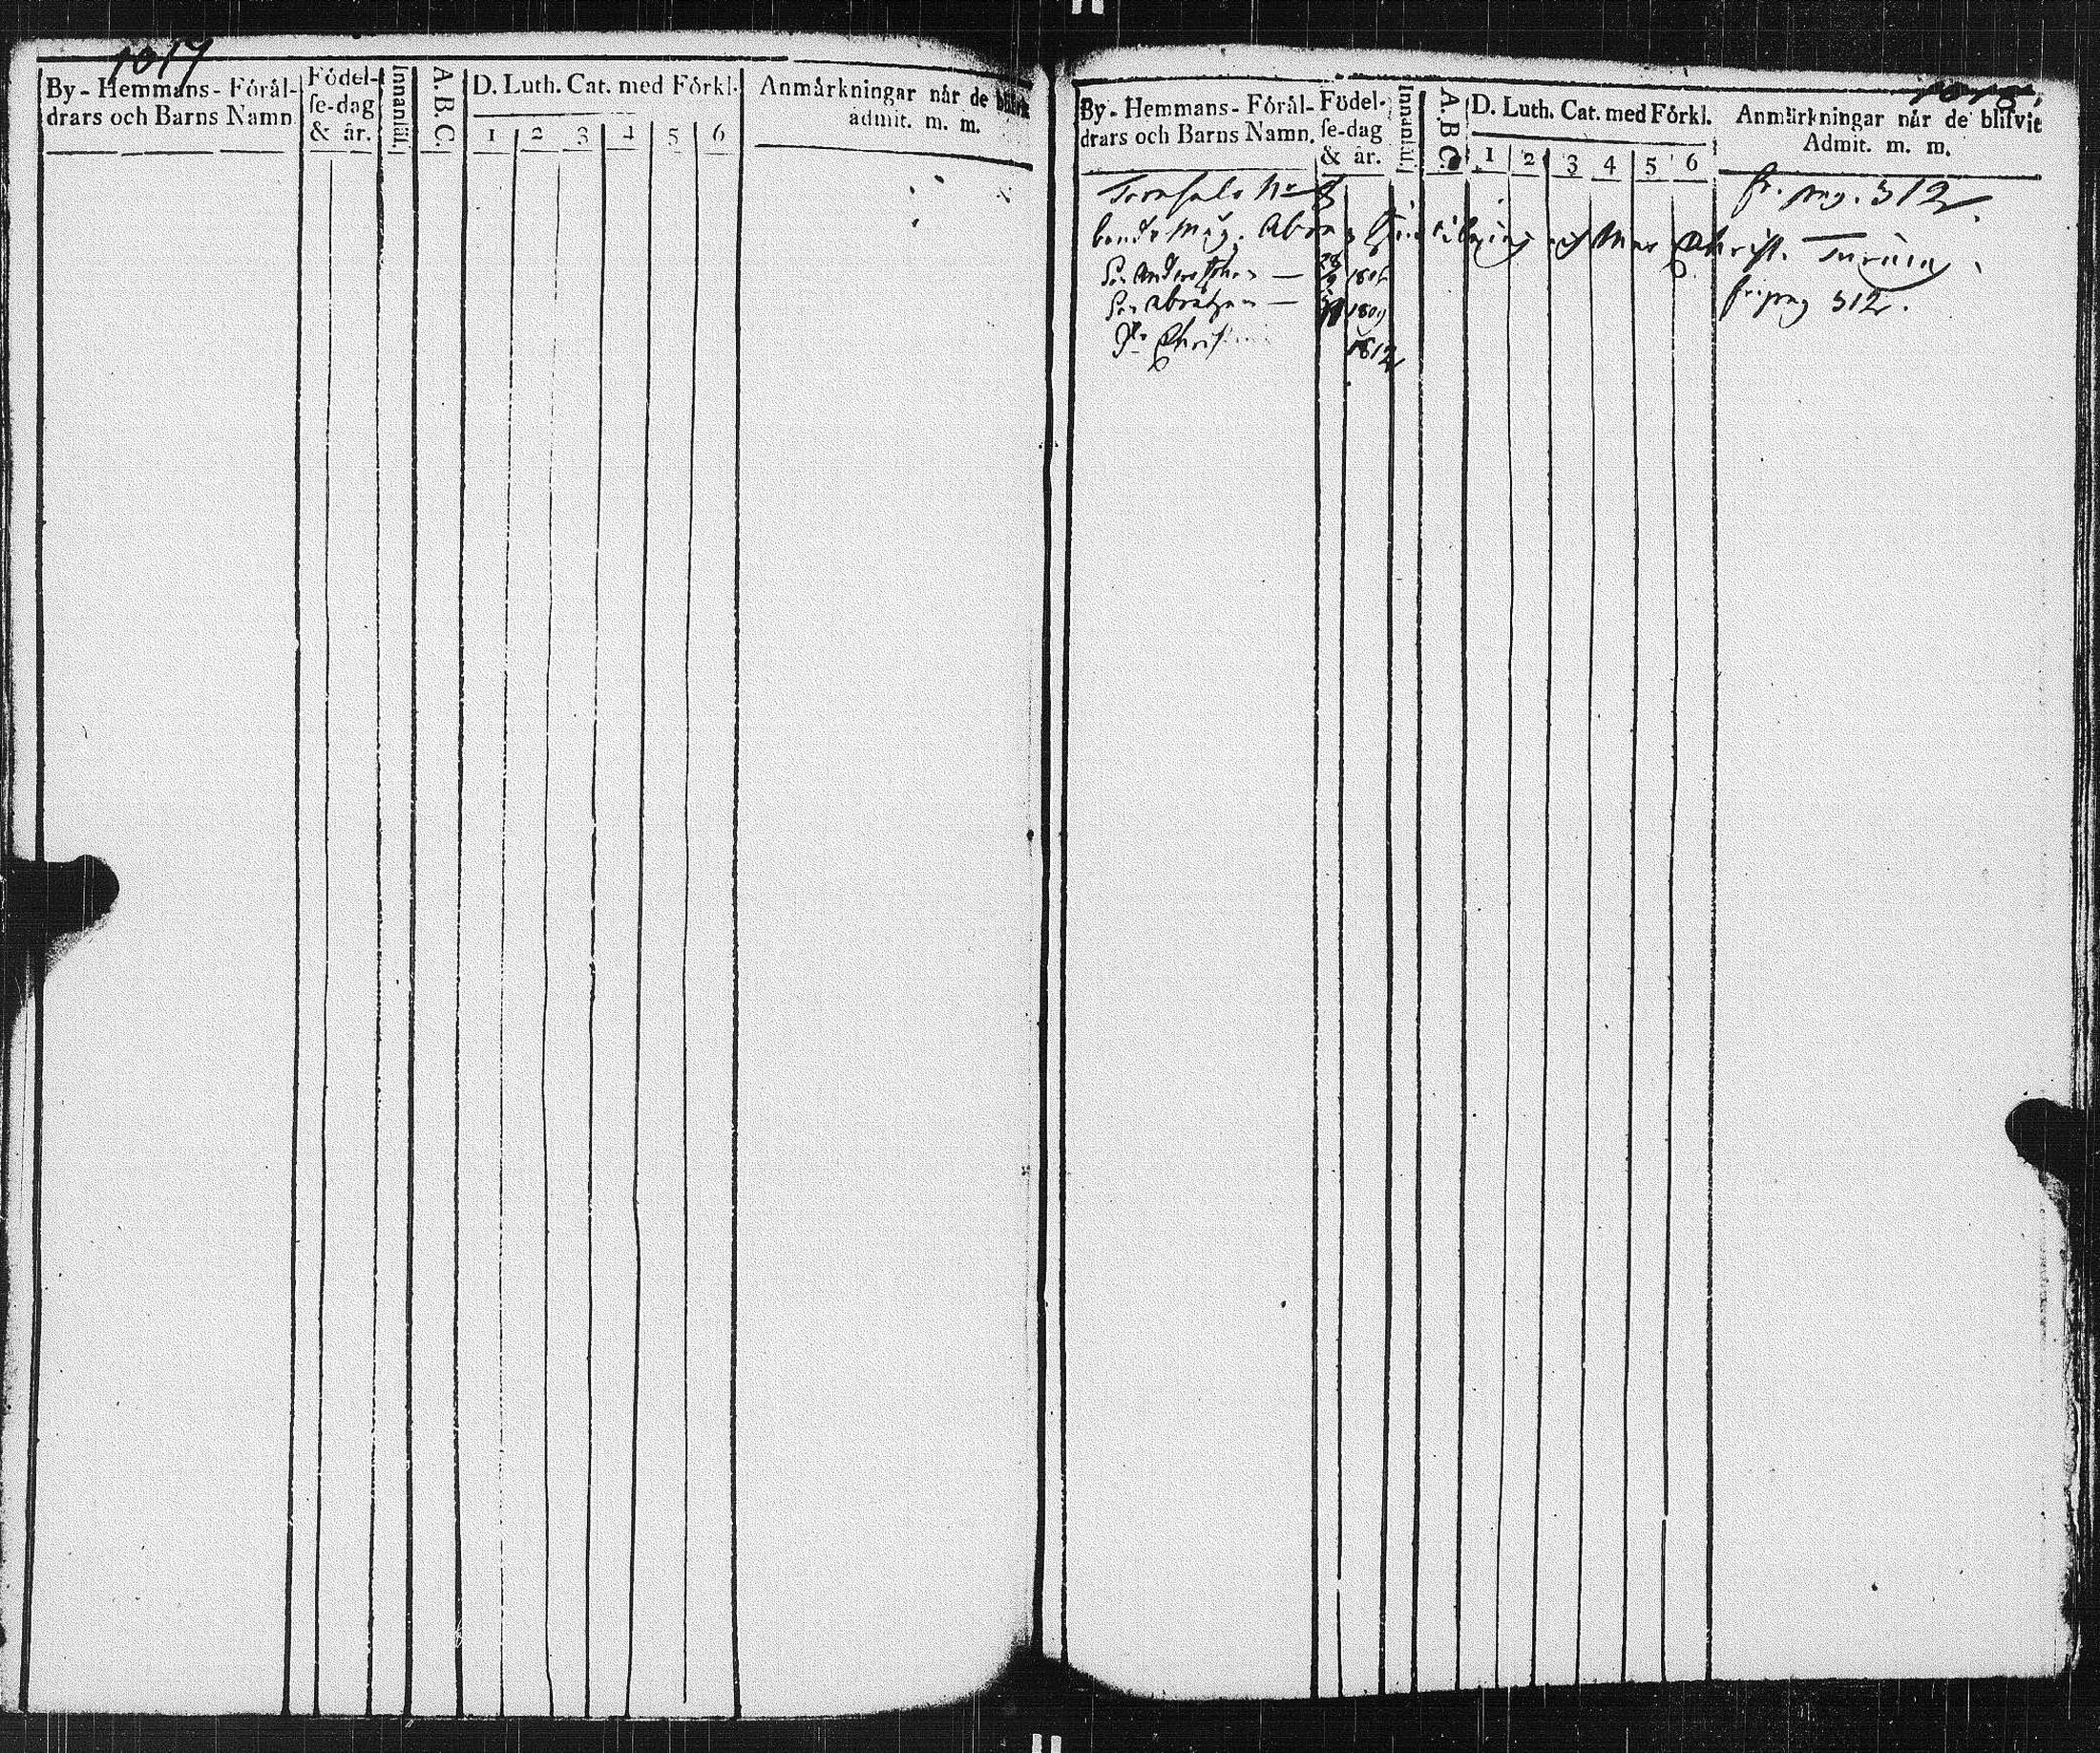 1017
By - Hemmans - Fórál-
drars och Barns Namn
Fódel-
se-dag
& år.
Innanläs.
A. B. C.
D. Luth. Cat. med Fórkl.
1 2 3 4 5 6
Anmårkningar når de blifvit
admit. m. m.
1018.
By - Hemmans - Fórál-
drars och Barns Namn.
Födel-
se-dag
& år.
Innanläs.
A. B. C.
D. Luth. Cat. med Fórkl.
1 2 3 4 5 6
Anmårkningar når de blifvit
Admit. m. m.
Nr 8 fr. pag. 312.
Christ.
Son Anders Johan — 1806
Son Abraham — 1809 fr. pag 312.
Christ 1812